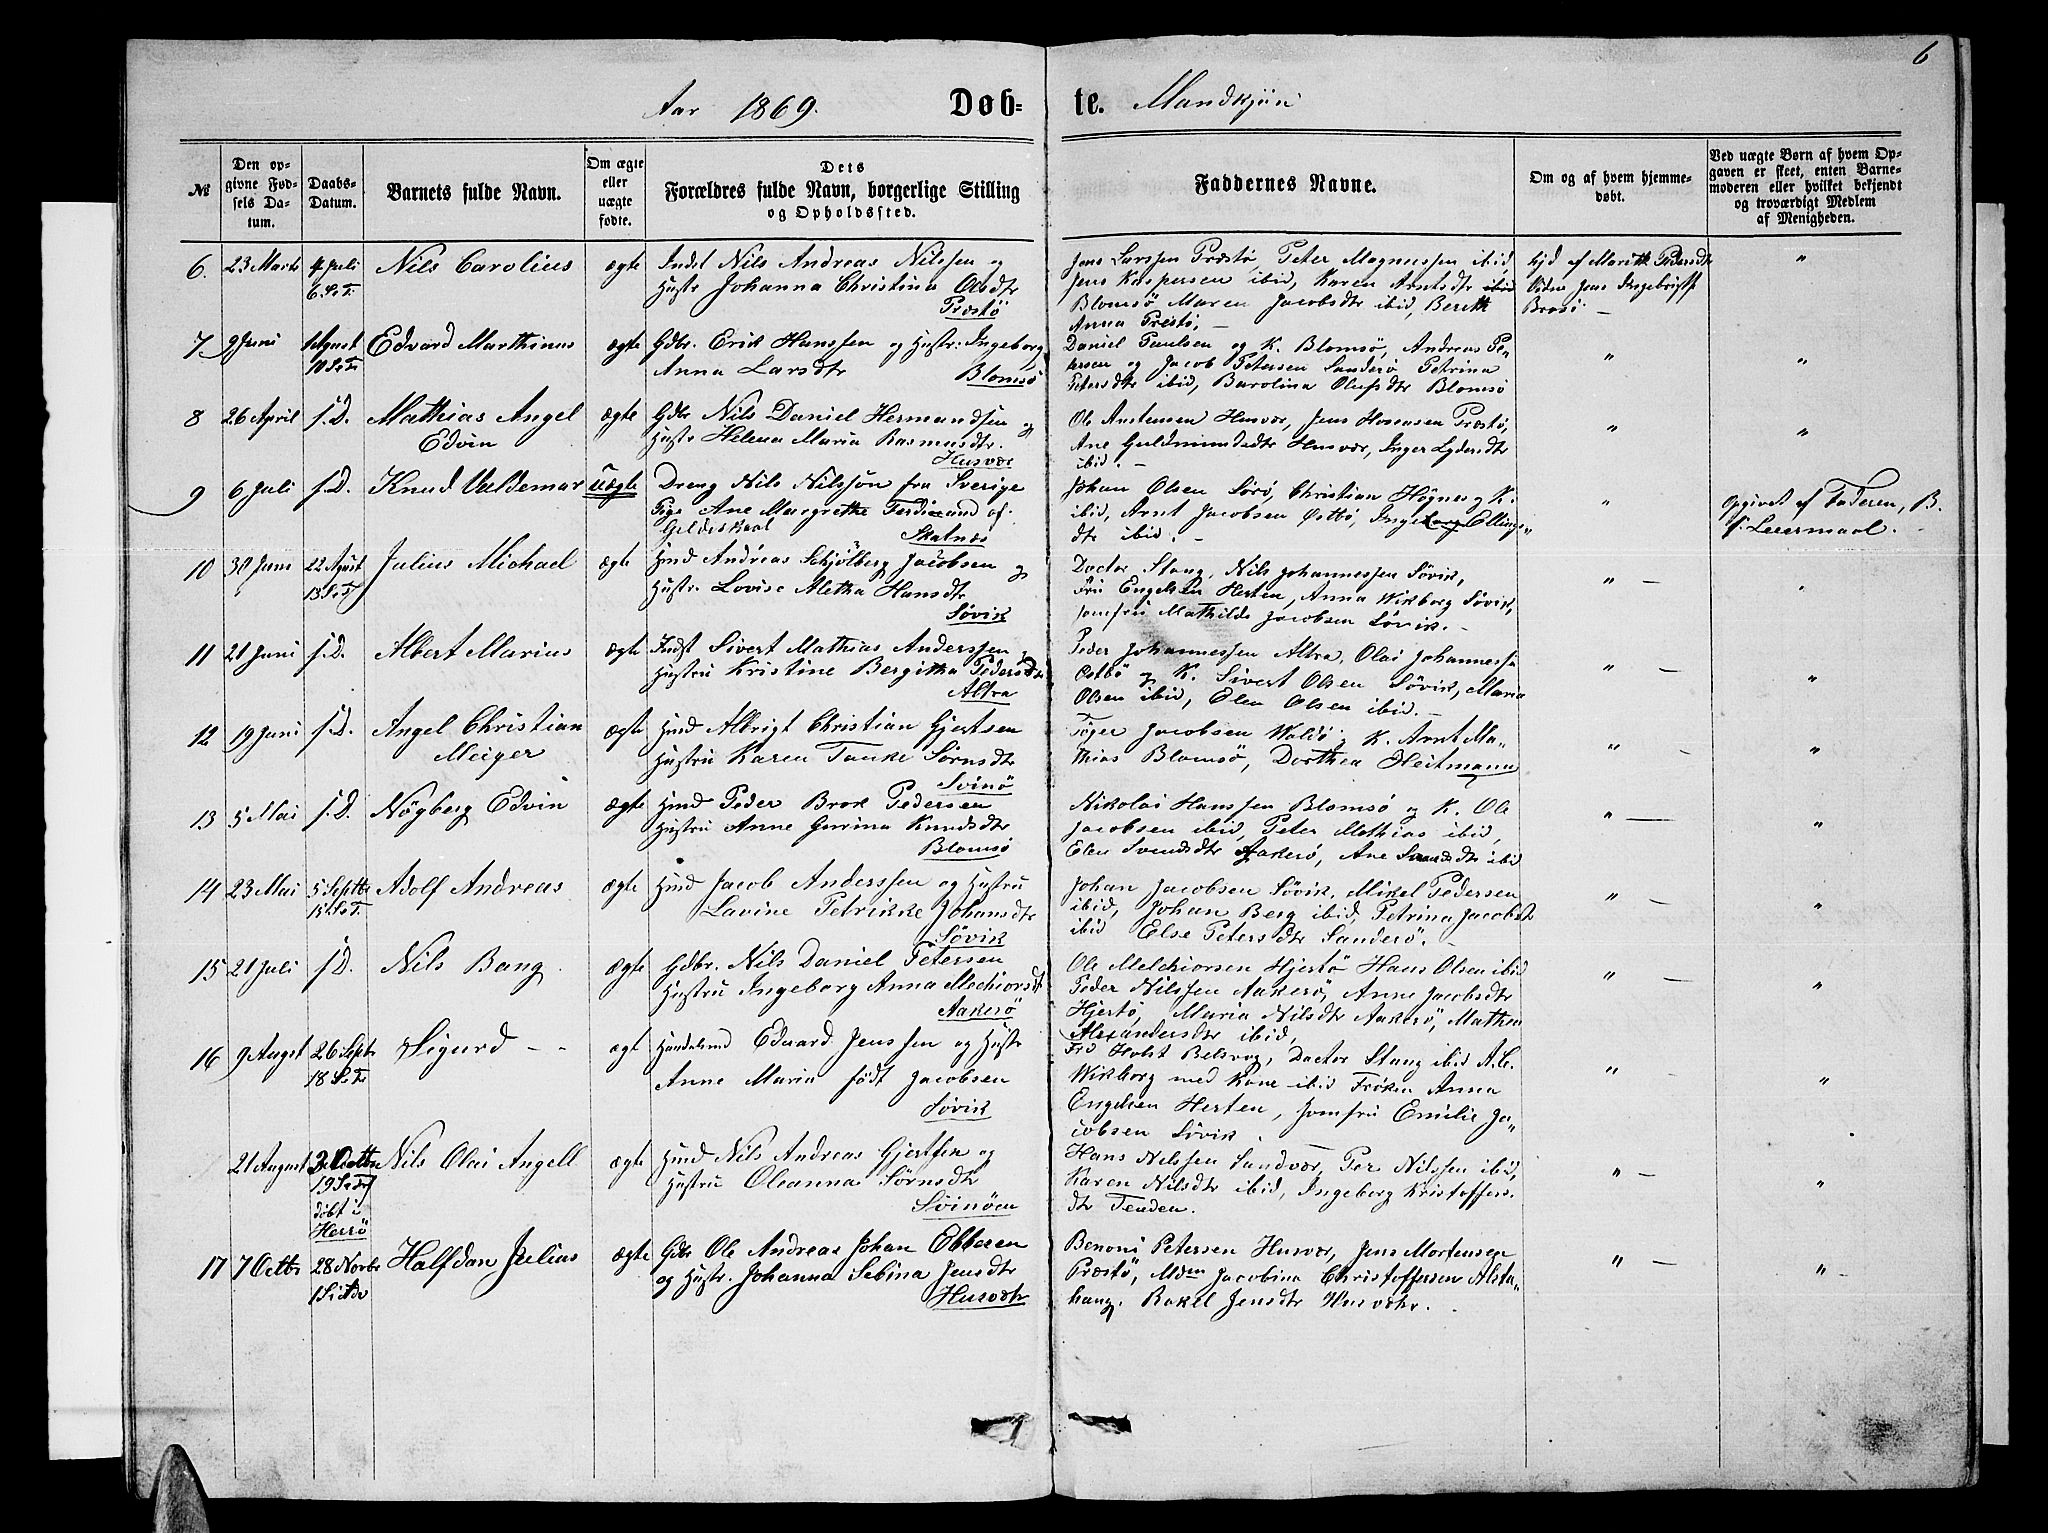 6
Aar 1869. Døb- te. Mandkjøn
№
Den opgivne Fødsels Datum.
Daabs-Datum.
Barnets fulde Navn.
Om ægte eller uægte fødte.
Dets Forældres fulde Navn, borgerlige Stilling og Opholdssted.
Faddernes Navne.
Om og af hvem hjemmedøbt.
Ved uægte Børn af hvem Opgaven er skeet, enten Barnemoderen eller hvilket bekjendt og troværdigt Medlem af Menigheden.
6. 23 Marts 4 Juli Nils Carolius ægte Indst Nils Andreas Nilssen og
6. S.e.T. Hustr Johanna Christina Olsdtr
Præstø
Jens Larssen Præstø, Peter Magnussen ibid,
Jens Kaspersen ibid, Karen Arntsdtr ibid
Blomsö Maren Jacobsdtr ibid, Bereth
Anna Prestö, —
Hjd af Marith Pedersdtr
Brasö —
"
7 9 Juni 1 August Edvard Marthinus ægte Gdbr. Erik Hanssen og Hustr: Ingeborg
10 S.e.T. Anna Larsdtr Blomsø
Daniel Paulsen og K. Blomsö, Andreas Pe-
tersen og Jacob Petersen Sanderö Petrina
Petersdtr ibid, Barolina Olufsdtr Blomsö
" "
8 26 April s.D. Mathias Angel ægte Gdbr Nils Daniel Hermandsen og
Edvin Hustr Helena Maria Rasmusdtr.
Husvær
Ole Antensen Husvær, Jens Præstø,
Ane Guldmundsdtr Husvær, Inger Lydersdtr
ibid. —
" "
9 6 Juli s.D. Knud Valdemar uægte Dreng Nils Nilsson fra Sverige
Pige Ane Margrethe Ferdinand af
Gildeskaal Skatnæs
Johan Olsen Sörö, Christian Högnes og K.
ibid, Arnt Jacobsen Østbö, Ingeborg Ellings-
dtr ibid. —
"
Opgivet af Faderen, B.
f. Leiermaal.
10 30 Juni 22 August Julius Michael ægte Hmd Andreas Schjölberg Jacobsen og
13 S.e.T. Hustr. Lovise Aletha Hansdtr
Søvik
Doctor Stang, Nils Johannessen Søvik,
Fru Engelsen Herten, Anna Wikborg Søvik,
Jomfru Mathilde Jacobsen Søvik. —
" — "
11 21 Juni s.D. Albert Marius ægte Indst Sivert Mathias Anderssen og
Hustru Kristine Bergitha Pedersdtr
Altra
Peder Johannessen Altra, Olai Johannessen
Østbö og K. Sivert Olsen Søvik, Maria
Olsen ibid, Elen Olsen ibid. —
" — "
12 19 Juni s.D. Angel Christian ægte Hmd Albrigt Christian Gjertsen
Meiger Hustru Karen Tanke Sörnsdtr
Svinö
Töger Jacobsen Waldö og K. Arnt Ma-
thias Blomsö, Dorthea Heitmann
" — "
13 5 Mai s.D. Nögberg Edvin ægte Hmd Peder Brok Pedersen
Hustru Anne Gurina Knudsdtr
Blomsø
Nikolai Hanssen Blomsö og K. Ole
Jacobsen ibid, Peter Mathias ibid,
Elen Svendsdtr Aakerö, Ane Svendsdtr ibid
" — "
14 23 Mai 5 Septbr Adolf Andreas ægte Hmd Jacob Anderssen og Hustru
15 S.e.T. Lavine Petrikke Johansdtr
Søvik
Johan Jacobsen Søvik, Mikel Pedersen
ibid, Johan Berg ibid, Petrina Jacobsdtr
ibid Else Petersdtr Sanderö. —
" — "
15 21 Juli s.D. Nils Bang ægte Gdbr. Nils Daniel Petersen
Hustru Ingeborg Anna Mechiorsdt
Aakerö
Ole Melchiorsen Hjertö Hans Olsen ibid
Peder Nilssen Aakerö, Anne Jacobsdtr
Hjertö, Maria Nilsdtr Aakerö, Mathea
Alexandersdtr ibid,
" — "
16 9 August 26 Septr Sigurd — — ægt Handelsmd Edvard Jenssen og Hustr
18 S.e.T Anne Maria född Jacobsen
Søvik
Holst Belsvog, Doctor Stang ibid A.C.
Wikborg med Kone ibid Fröken Anna
Engelsen Herten, Jomfru Emilie Ja-
cobsen Søvik.
" "
21 August 3 Octbr Nils Olai Angell ægte Hmd Nils Andreas Gjertsen og
19 S.e.T döbt i Herrö Hustru Oleanna Sörnsdtr
Svinöen
Hans Nilssen Sandvær, Per Nilssen ibid,
Karen Nilsdtr ibid, Ingeborg Kristoffers-
dtr Tenden.
" — "
17 7 Octbr 28 Novbr Halfdan Julius ægte Gdbr Ole Andreas Johan Ebbesen
1 S i Adv og Hustr. Johanna Sebina Jensdtr
Husvær
Benoni Petersen Husvær, Jens Mortensen
Præstö, Mdm Jacobina Christoffersen Alsta-
haug. Rakel Jensdtr Husvær.
" — "